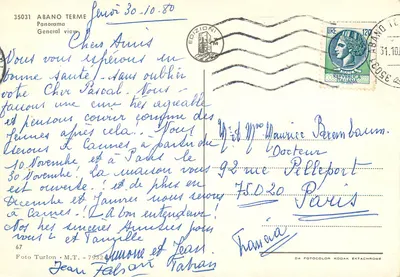 35031 ABANO TERME
Panorama
General view
Jeudi 30-10.80
Chers Amis
Vous vous espérons en
bonne santé, sans oublier
votre Cher Pascal. Nous
faisons une cure très agréable
et pensons courir comme des
jeunes après cela. Nous
serons à Cannes à partir du
10 Novembre et à Paris le
30 Novembre! la maison vous
est ouverte! et de plus en
Décembre et Janvier nous serons
à Cannes! A bon entendeur!
Nos très sincères Amitiés pour
vous 2 et famille
Simone et Jean
Jean Fabian Fabian
67
Foto Turlon - M.T. -
EDIZIONI
LIRE 120
ABANO TE
31.10
35031
M et Mme Maurice Berembaum
Docteur
92 rue Pelleport
75020 Paris
Francia
DA FOTOCOLOR KODAK EKTACHROME